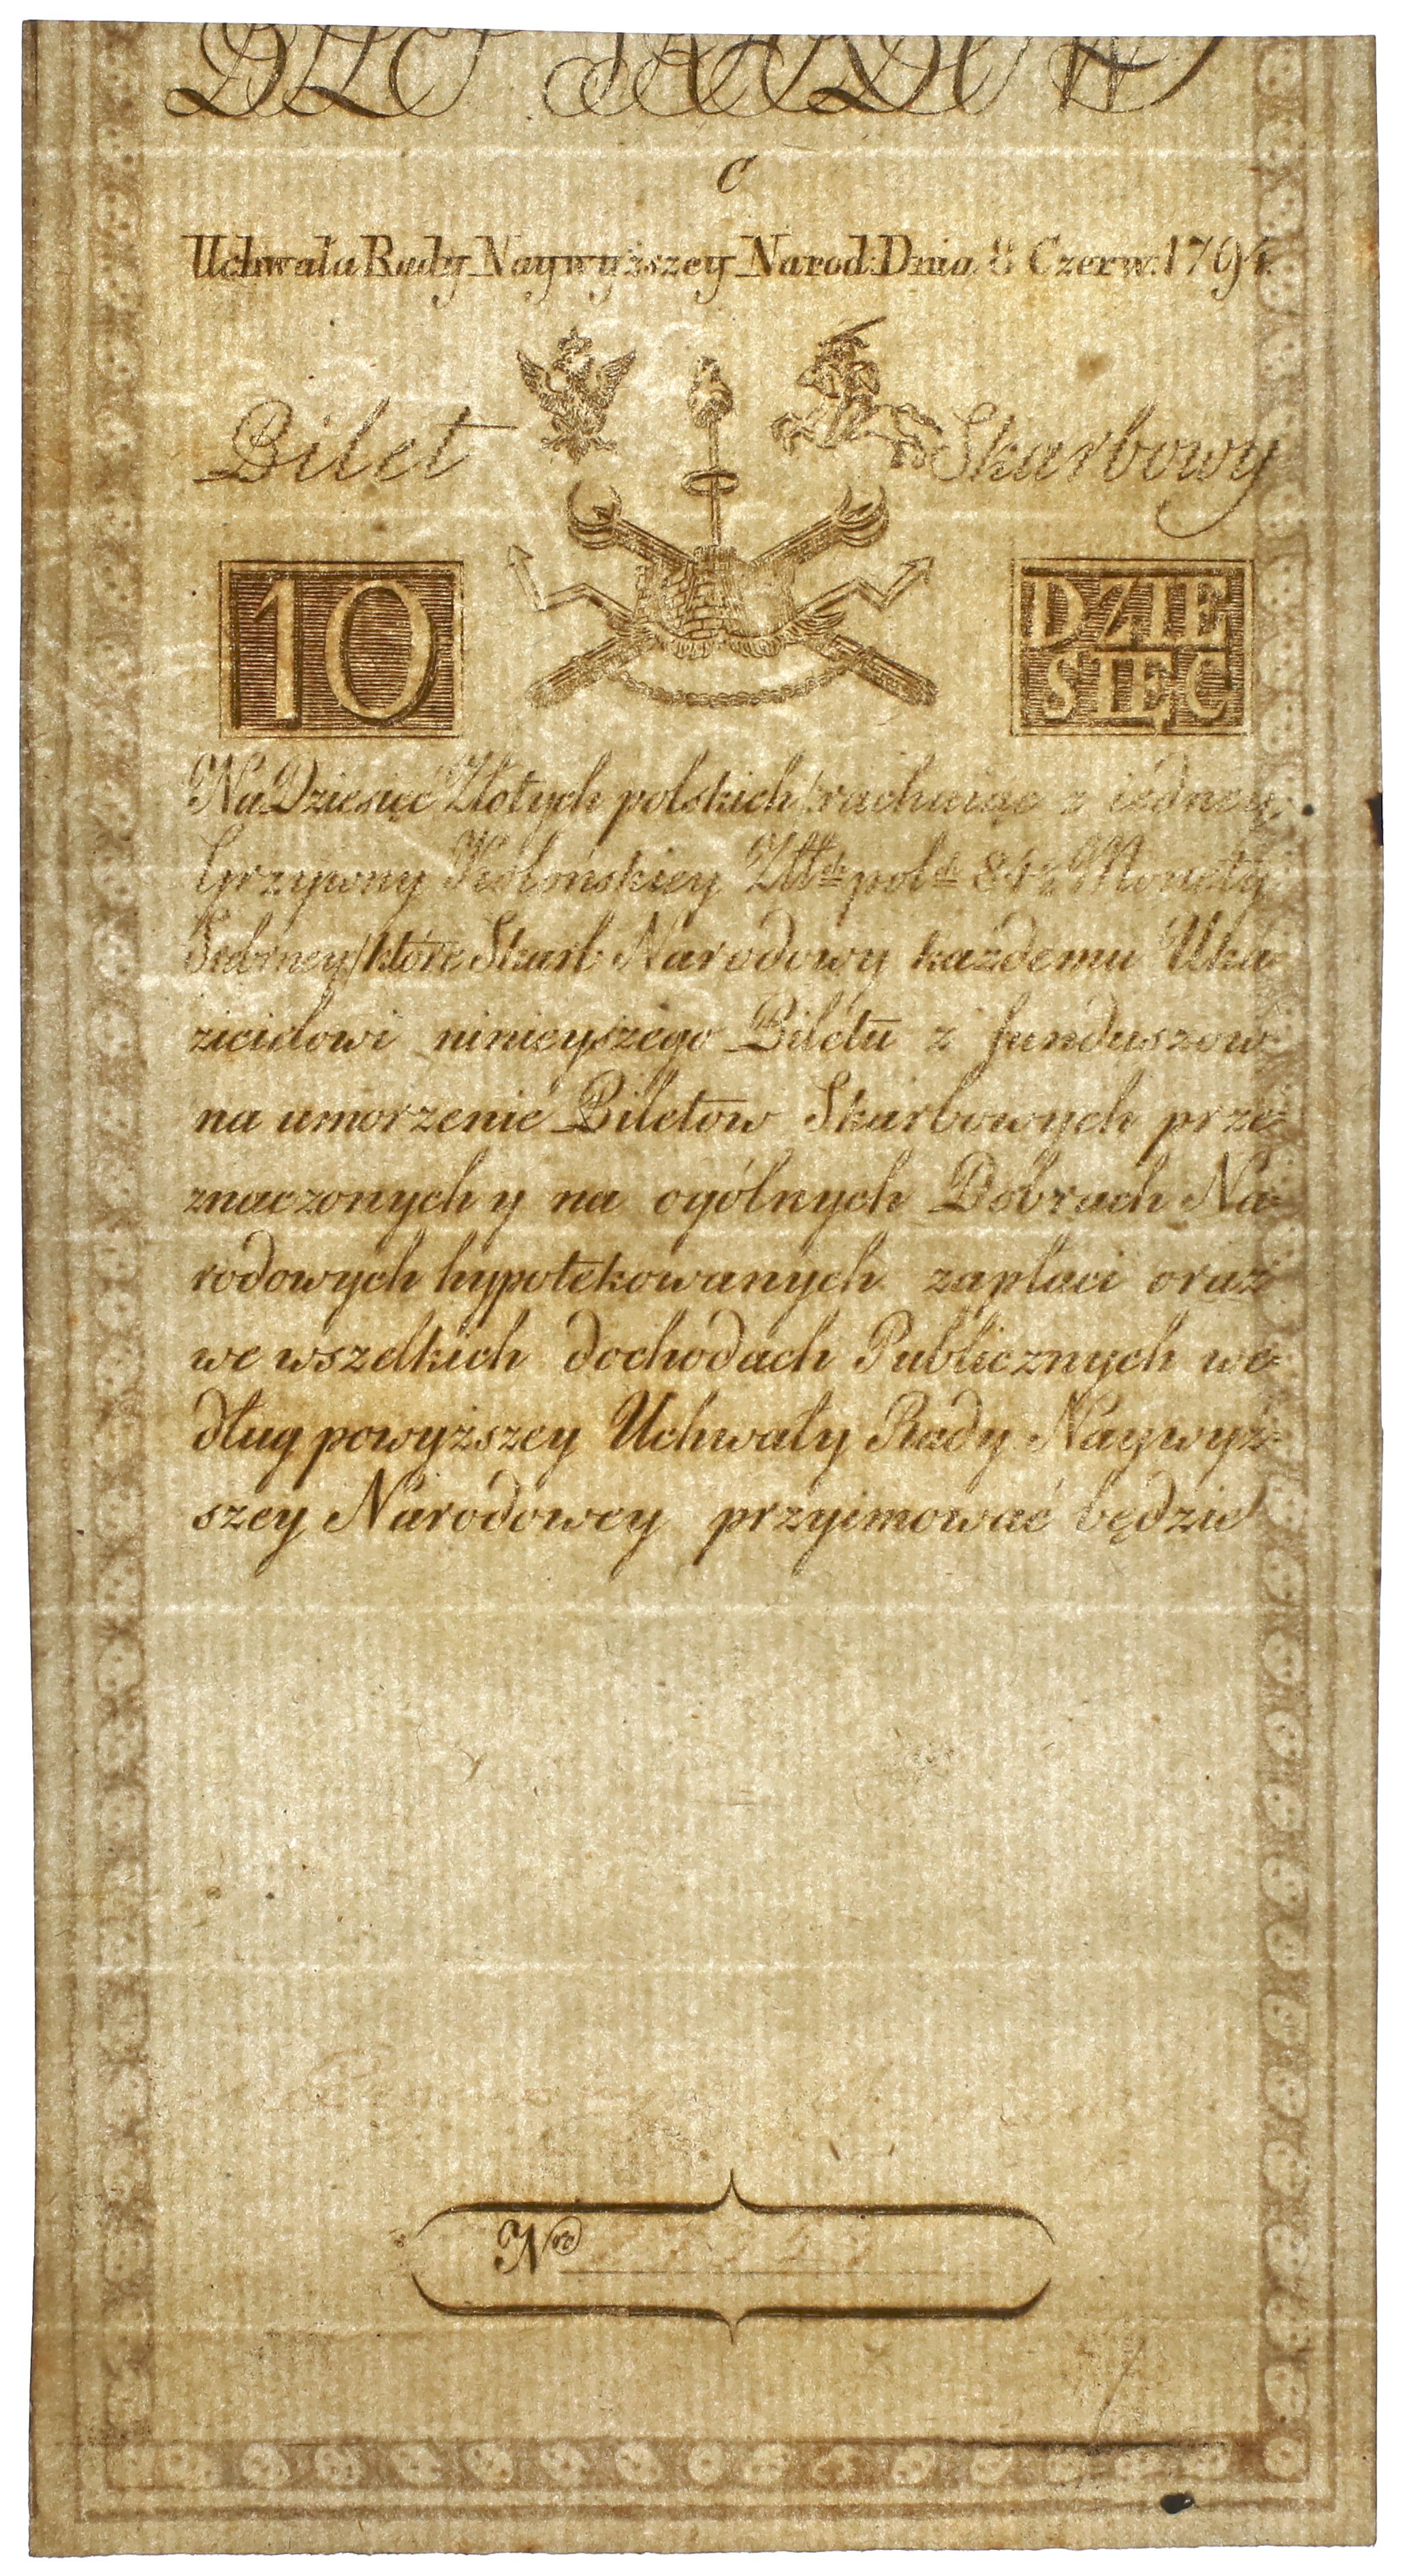 C
Uchwała Rady Naywyższey Narod: Dnia 8 Czerw: 1794.
Bilet Skarbowy
10 DZIE
SIĘC
Na Dziesięć Złotych polskich /rachuiąc z iedney
Grzywny Kolońskiey Złł: pol: 84½ Monety
Srebrney/ które Skarb Narodowy każdemu Uka-
zicielowi ninieyszego Biletu z funduszow
na umorzenie Biletow Skarbowych prze-
znaczonych y na ogólnych Dobrach Na-
rodowych hypotekowanych zapłaci oraz
we wszelkich dochodach Publicznych we-
dług powyższey Uchwały Rady Naywyż-
szey Narodowey przyimować będzie
Nro